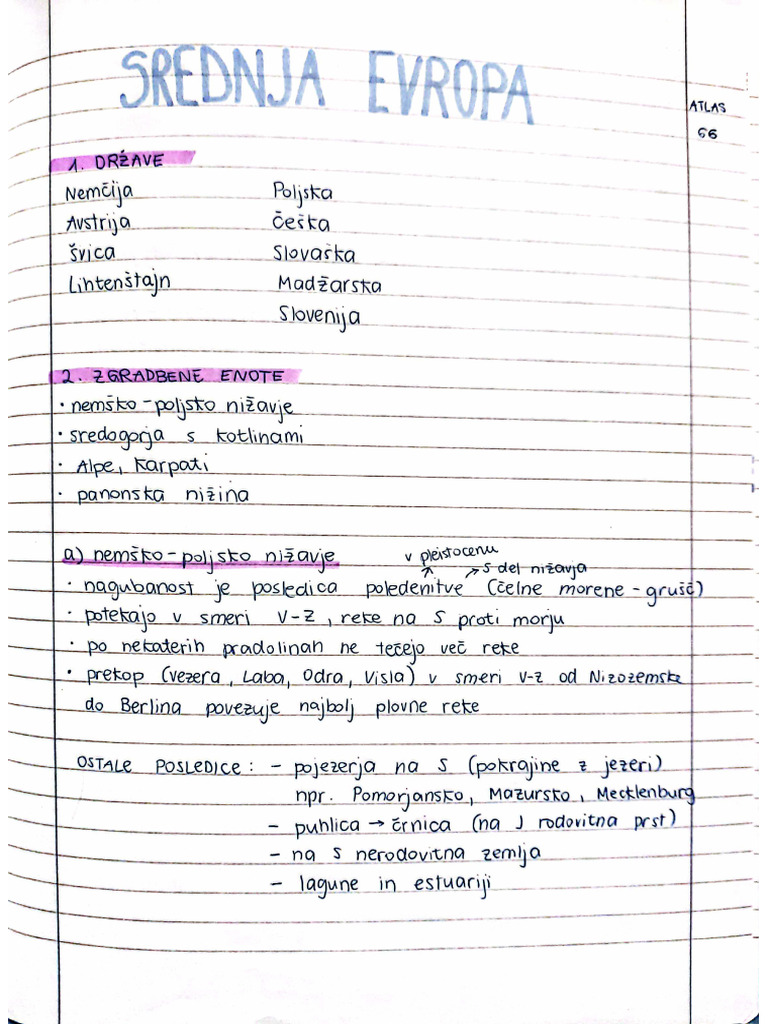 SREDNJA EVROPA
ATLAS
66
1. DRŽAVE
Nemčija Poljska
Avstrija Češka
Švica Slovaška
Lihtenštajn Madžarska
Slovenija
2. ZGRADBENE ENOTE
· nemško-poljsko nižavje
· sredogorja s kotlinami
· Alpe, Karpati
· panonska nižina
a) nemško-poljsko nižavje
v pleistocenu
S del nižavja
· nagubanost je posledica poledenitve (čelne morene - grušč)
· potekajo v smeri V-Z, reke na S proti morju
· po nekaterih pradolinah ne tečejo več reke
· prekop (Vezera, Laba, Odra, Visla) v smeri V-Z od Nizozemske
do Berlina povezuje najbolj plovne reke
OSTALE POSLEDICE: - pojezerja na S (pokrajine z jezeri)
npr. Pomorjansko, Mazursko, Mecklenburg
- puhlica → črnica (na J rodovitna prst)
- na S nerodovitna zemlja
- lagune in estuariji